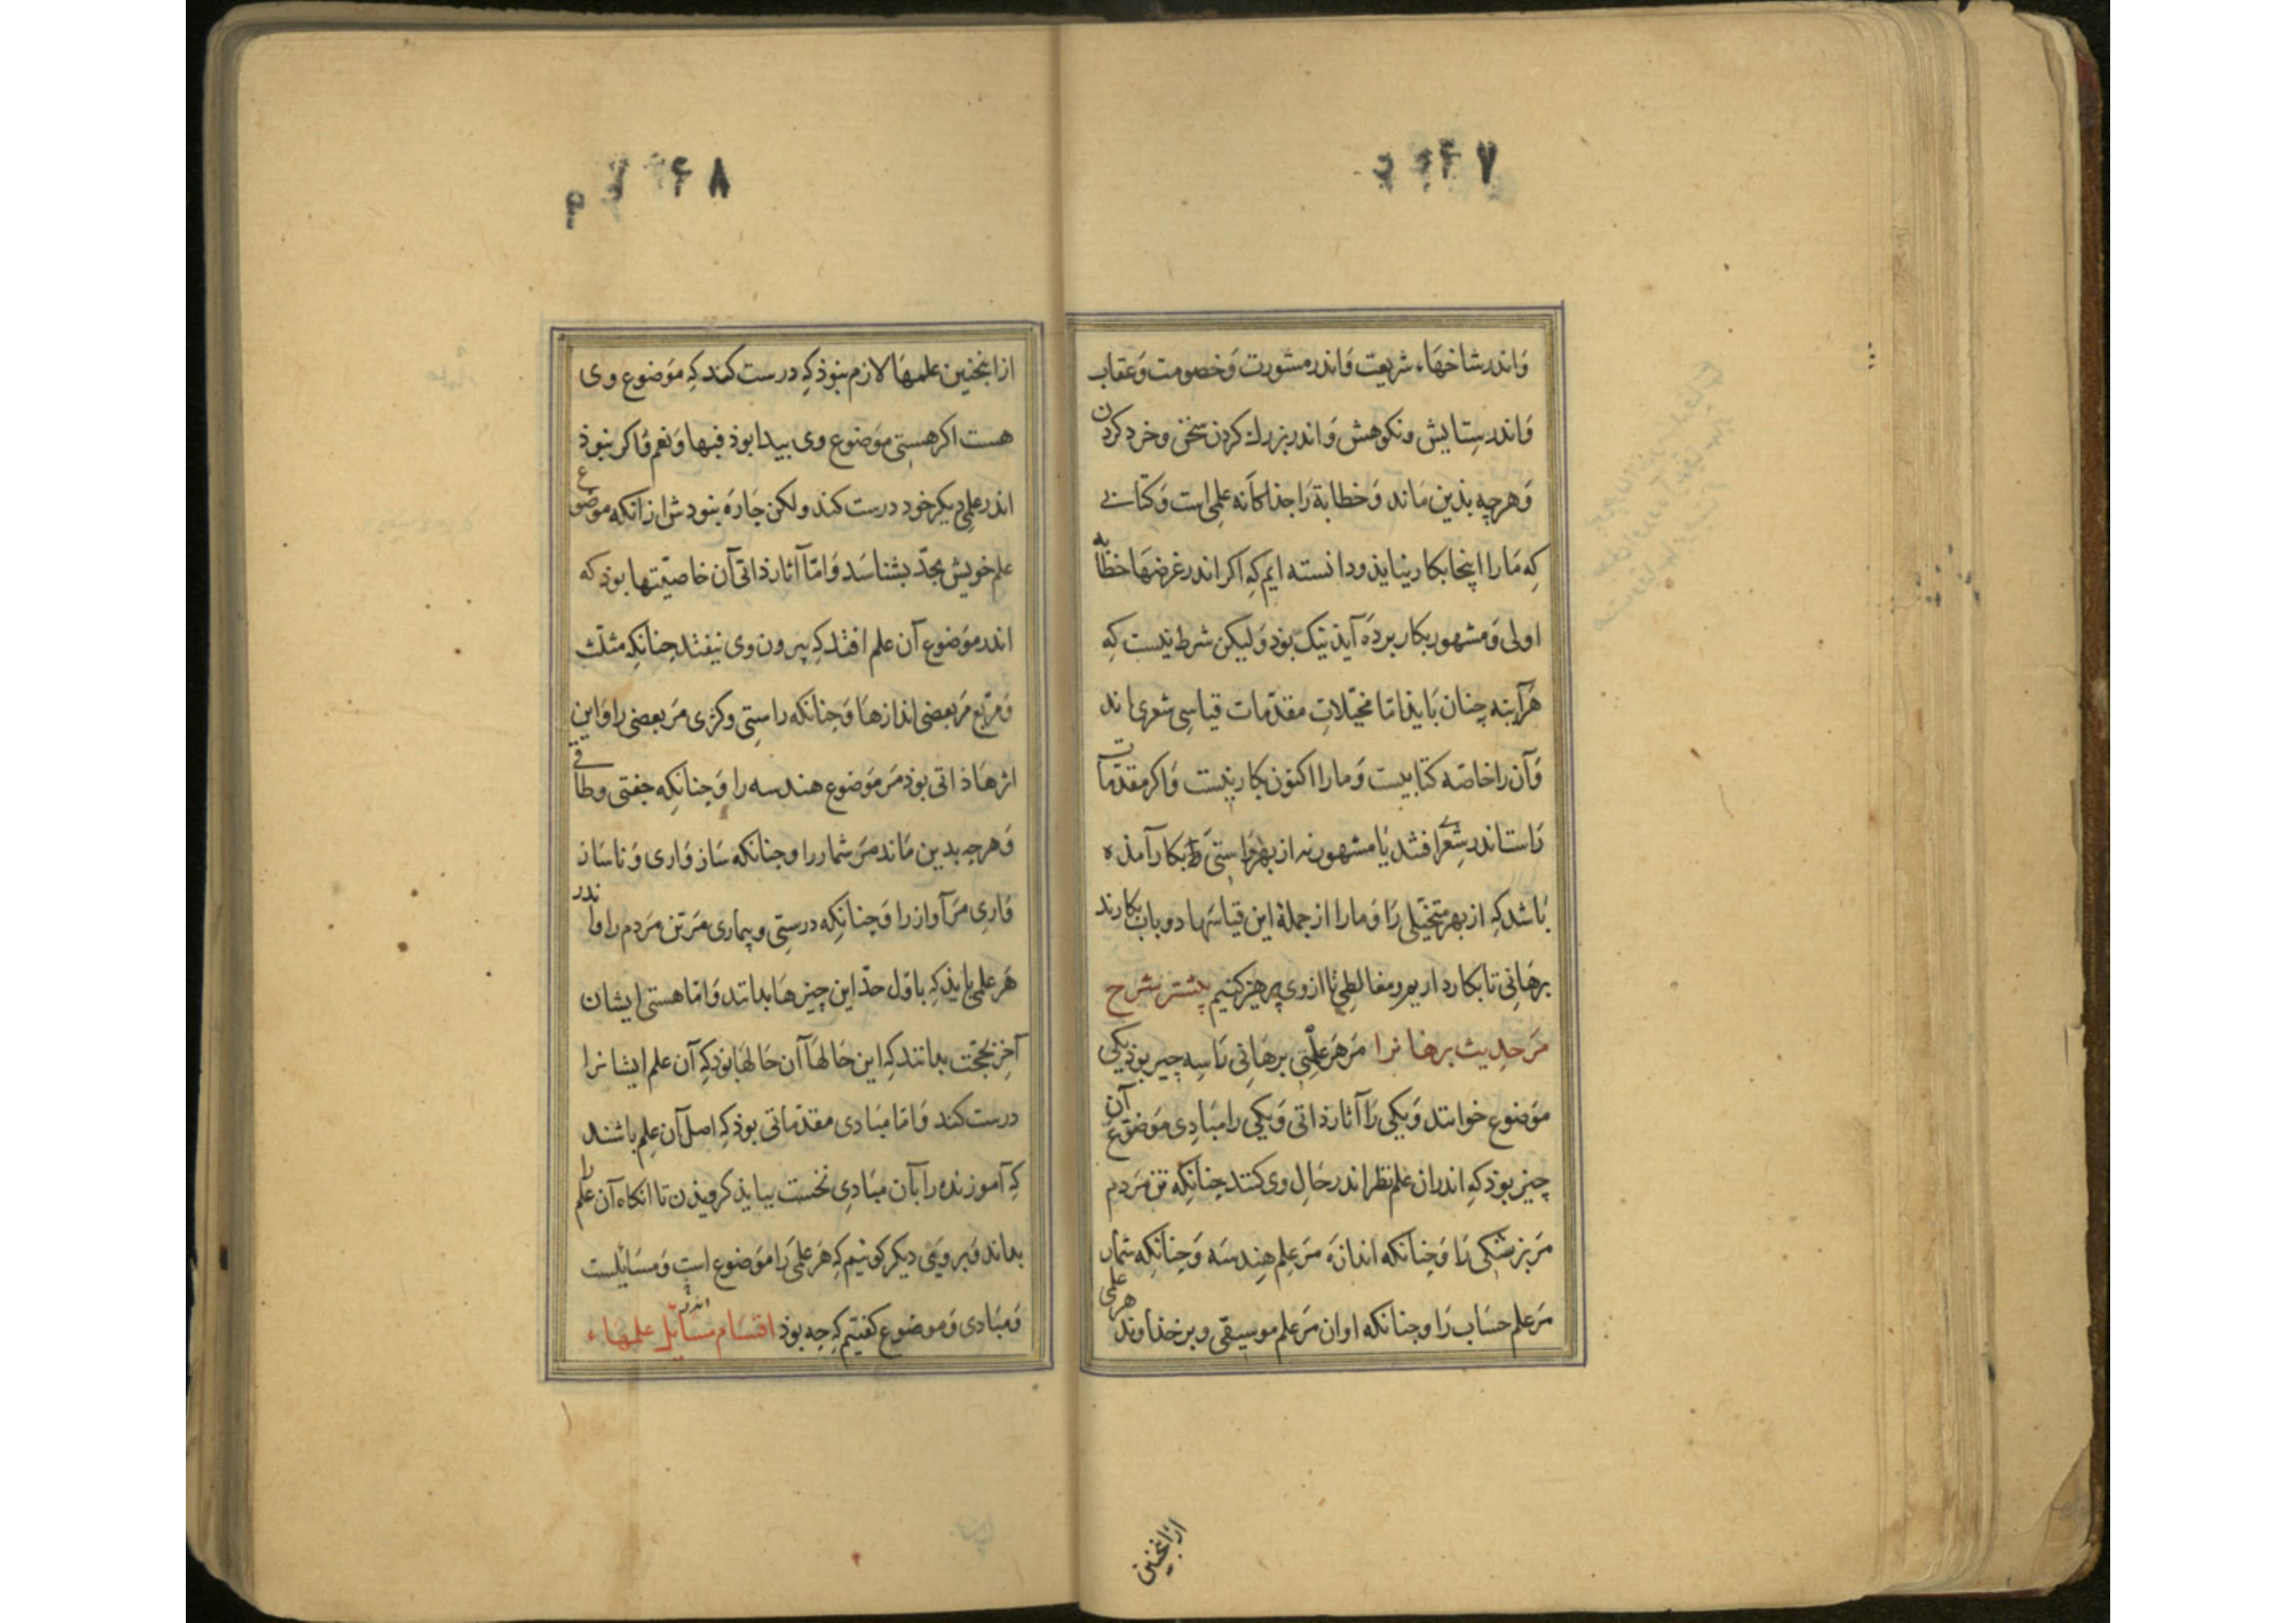 ۴۷
وَاندر شاخهَاء شریعت وَاندر مشورت وَخصومت وَعقاب
وَاندر سِتایش ونکوهش وَاندر بزرك کردن سخن وخرد کردن
وَهرچه بذین مَاند وَخطابة رَا جذاکَانه علمی است وَکتابی
کِه مَارا اینجا بکار نیایذ ودانسته ایم کِه اکر اندر غرضهَا خطابه
اولی وَمشهور بکار بردَه آیذ نیک بوذ وَلیکن شرط نیست کِه
هَرآینه چنان بَایذ امّا مخیّلاتِ مقدّمات قیاسِی شعری اند
وَآن را خاصّه کتابیست وَمارا اکنون بکار نیست وَاکر مقدّمات
رَاست اندر شعری افتد یَا مشهور نه از بهر رَاستی رَا بکار آمذه
بَاشد کِه از بهر متخیّلی رَا وَمارا از جملهٔ این قیاسَها دو باب بکارند
برهَانِی تا بکار داریم ومغالطِی تا از وی پرهیز کنیم بیشتر شرح
مَر حدِیث برهانرا مَر هَر علمِی برهَانِی رَا سِه چیز بوذ یکی
موَضوع خوانند وَیکی رَا آثار ذاتی وَیکی را مبَادِی موَضوع آن
چیز بوذ کِه اندران علم نظر اندر حَالِ وی کنند چنانکِه تن مَردم
مَر بزشکی رَا وَچنانکه اندازَه مَر عِلم هِندسَه وَچنانکِه شمار
مَر علم حسَاب رَا وچنانکه اوان مَر علم موسیقی وبر خذاوند هر علمی
ازاینجنین
۴۸
ازاینجنین علمهَا لازم نبوذ کِه درست کند کِه موَضوع وی
هست اکر هستیِ موَضوع وی بیدا بوذ فبها وَنعم وَاکر نبوذ
اندر علمِ دیکر خود درست کند ولکن جَارَه نبودش ازآنکه موضوع
علم خویش بحدّ بشناسَد وَامّا آثار ذاتی آن خاصیّتها بوذ که
اندر موَضوع آن علم افتد کِه بیرون وی نیفتد جنانکِه مثلّث
وَمربّع مَر بعضی اندازهَا وَجنانکه راستِی وکژی مَر بعضی را وَاین
اثرهَا ذاتی بوذ مَر موَضوع هندسه را وَجنانکِه جفتی وطاقی
وَهرجه بدین مَاند مَر شمار را وجنانکه سَاز وَاری وَناسَاز
وَارِی مَر آواز را وَجنانکِه درستِی وبیماری مَر تن مَردم را واندر
هَر علمی بَایذ کِه باوّل حدّ این چیزهَا بدانند وَامّا هستی ایشان
آخِر بحجّت بدانند کِه این حَالهَا آن حَالهَا بوَد کِه آن علم ایشانرا
درست کند وَامّا مبَادی مقدّماتی بوذ کِه اصل آن عِلم باشند
کِه آموزنده را بآن مبَادِی نخست بیایذ کرویذن تا انکاه آن علم را
بداند وَبر ویَی دیکر کوئیم کِه هَر علمی رَا موَضوع است وَمسَایلست
وَمبَادی وَموضوع کفتیم کِه جه بوذ اقسَام مسَائل علمهَاء